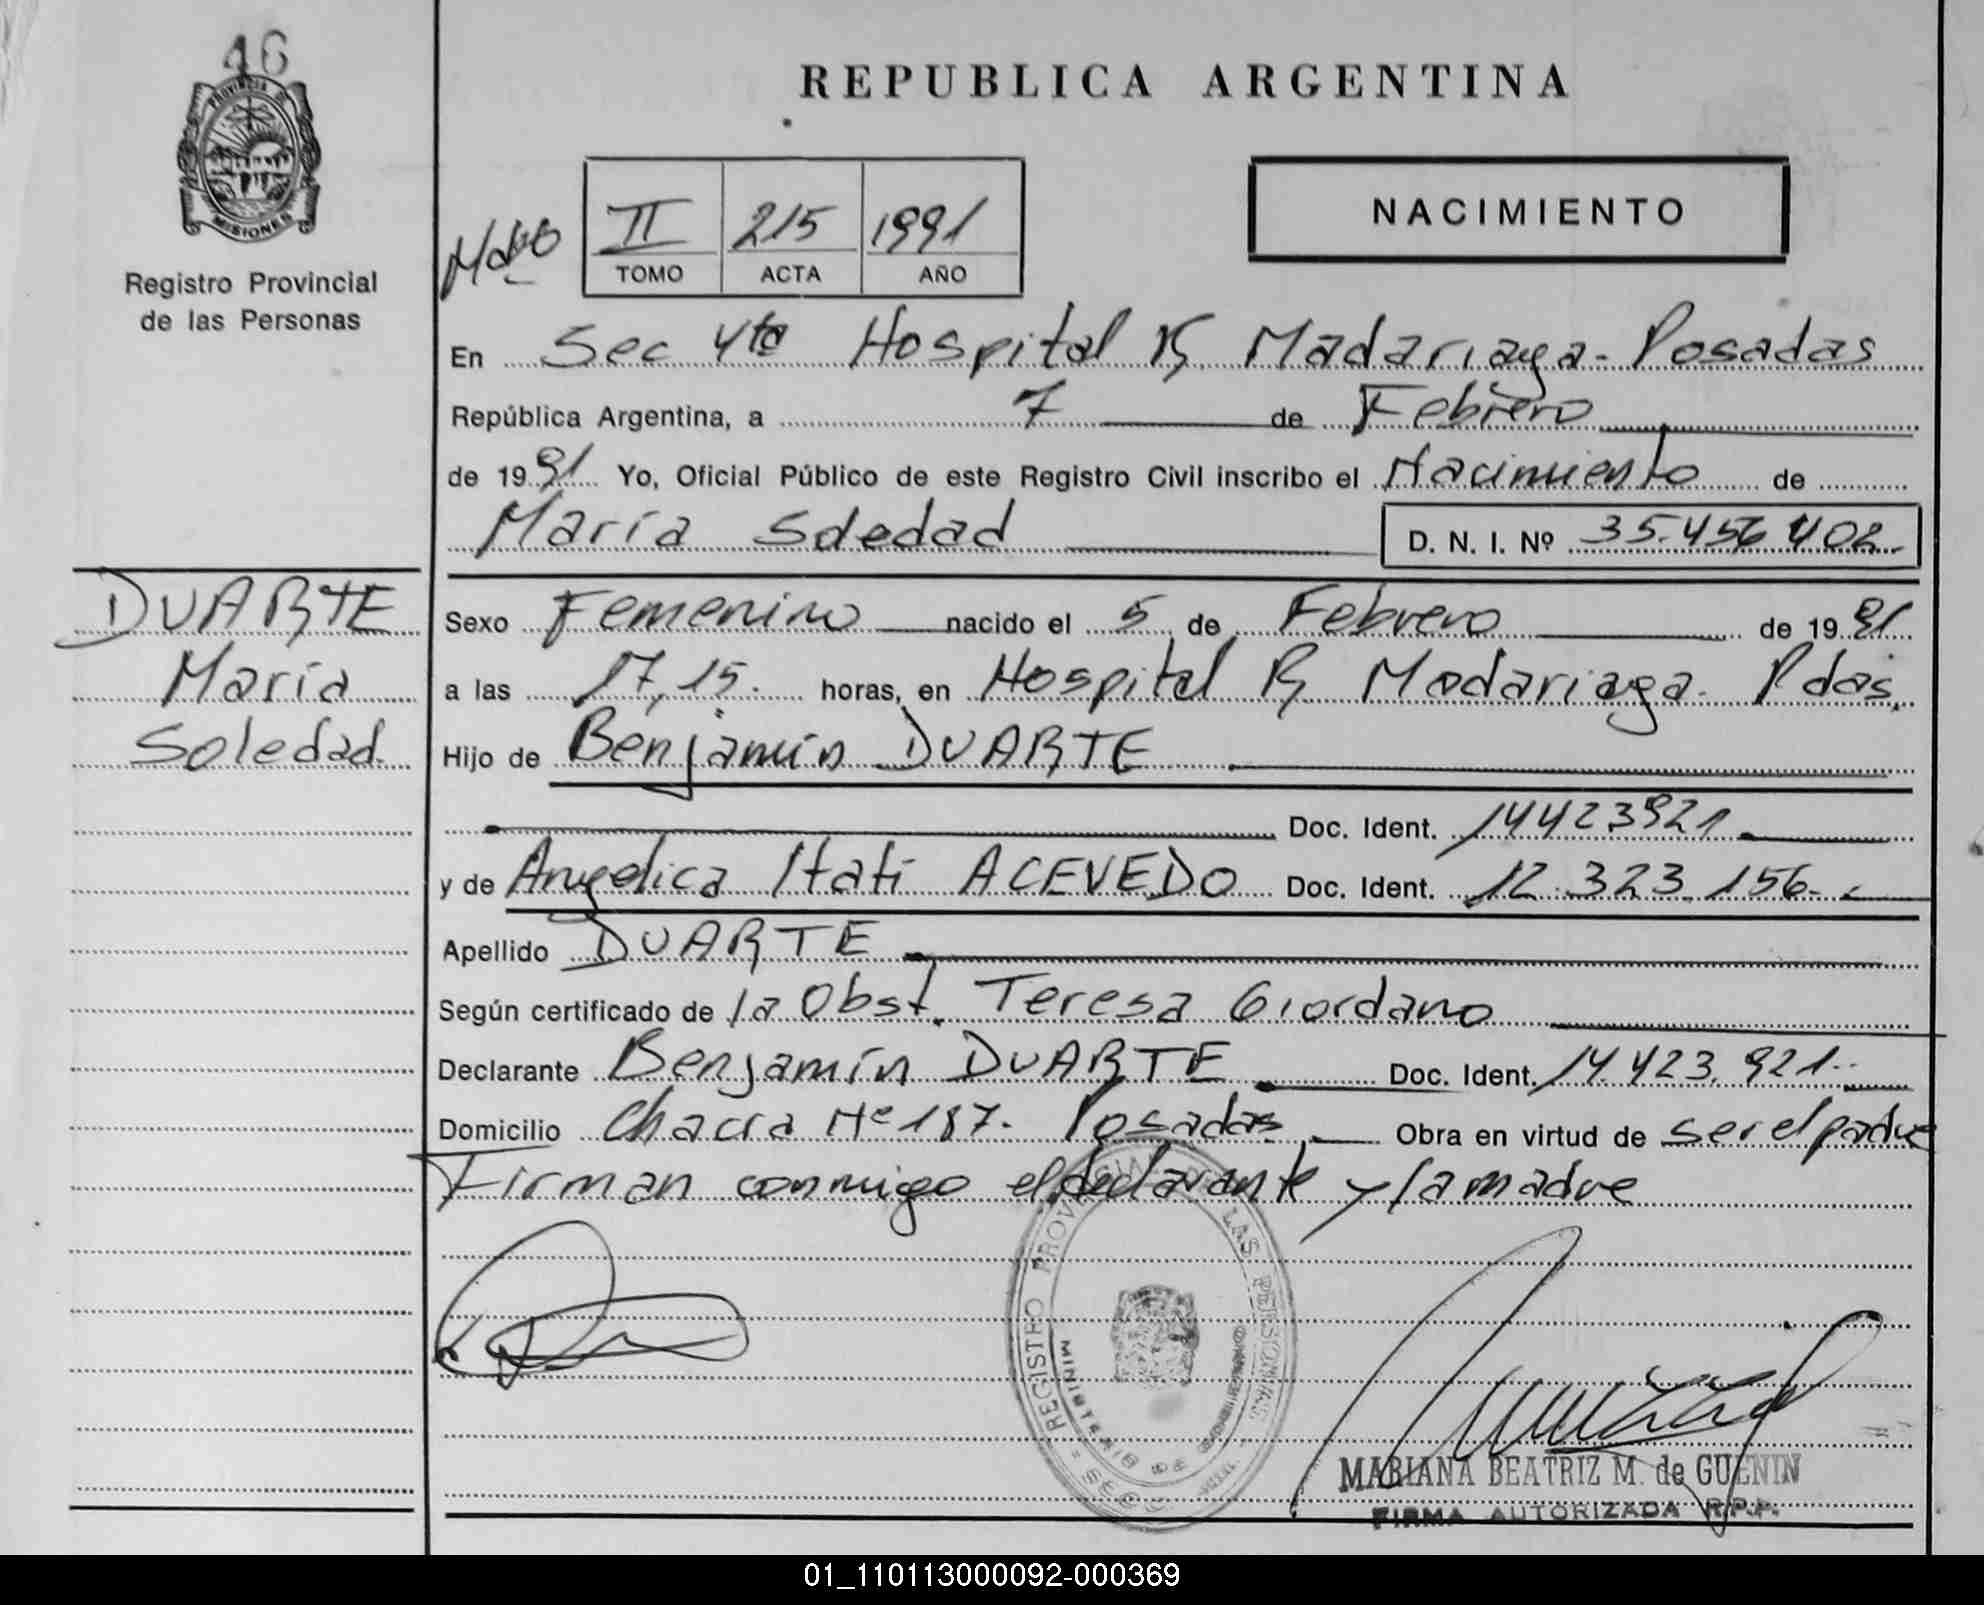 46
PROVINCIA DE
MISIONES
Registro Provincial
de las Personas
REPUBLICA ARGENTINA
II 215 1991
TOMO ACTA AÑO
NACIMIENTO
En Sec 4ta Hospital R Madariaga - Posadas
República Argentina, a 7 de Febrero
de 1991 Yo, Oficial Público de este Registro Civil inscribo el Nacimiento de
María Soledad D. N. I. Nº 35.456.402.-
DUARTE
María
Soledad.
Sexo Femenino nacido el 5 de Febrero de 1991
a las 17,15. horas, en Hospital R Madariaga - Pdas.
Hijo de Benjamín DUARTE
Doc. Ident. 14423921
y de Angelica Itati ACEVEDO Doc. Ident. 12.323.156.-
Apellido DUARTE
Según certificado de la Obst. Teresa Giordano
Declarante Benjamín DUARTE Doc. Ident. 14.423.921.-
Domicilio Chacra Nº 187. Posadas Obra en virtud de ser el padre
Firman conmigo el declarante y la madre
REGISTRO PROVINCIAL DE LAS PERSONAS
MINISTERIO DE
MARIANA BEATRIZ M. de GUENIN
FIRMA AUTORIZADA R.P.P.
01_110113000092-000369